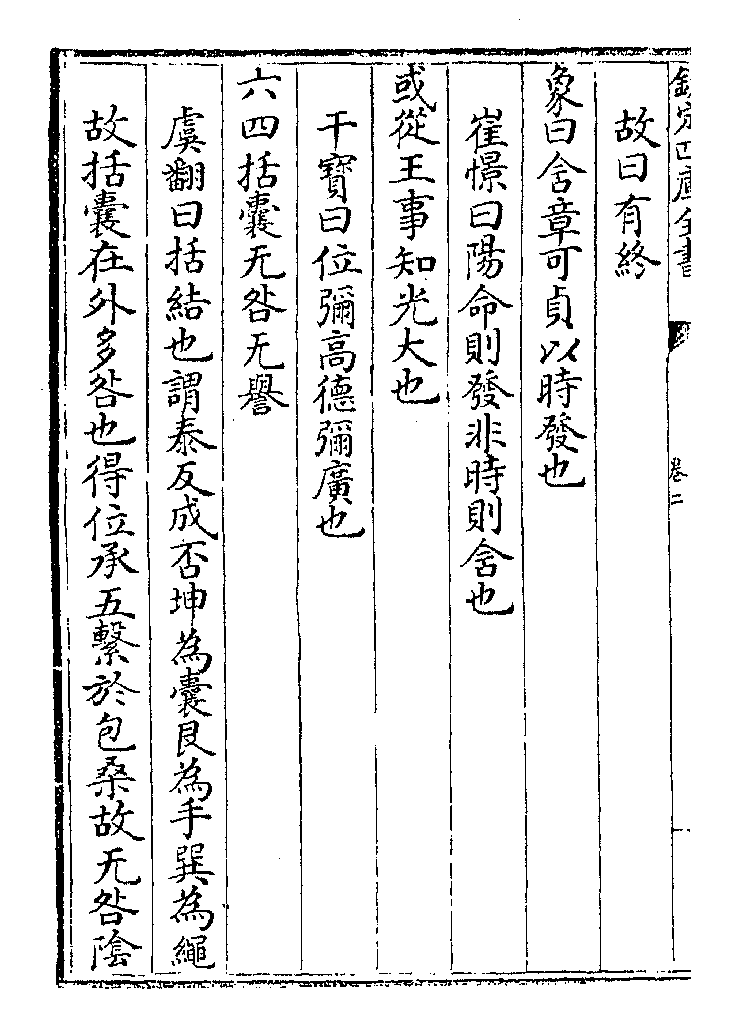 欽定四庫全書
卷二
故曰有終
象曰含章可貞以時發也
崔憬曰陽命則發非時則含也
或從王事知光大也
干寶曰位彌高德彌廣也
六四括囊无咎无譽
虞翻曰括結也謂泰反成否坤為囊艮為手巽為繩
故括囊在外多咎也得位承五繫於包桑故无咎陰